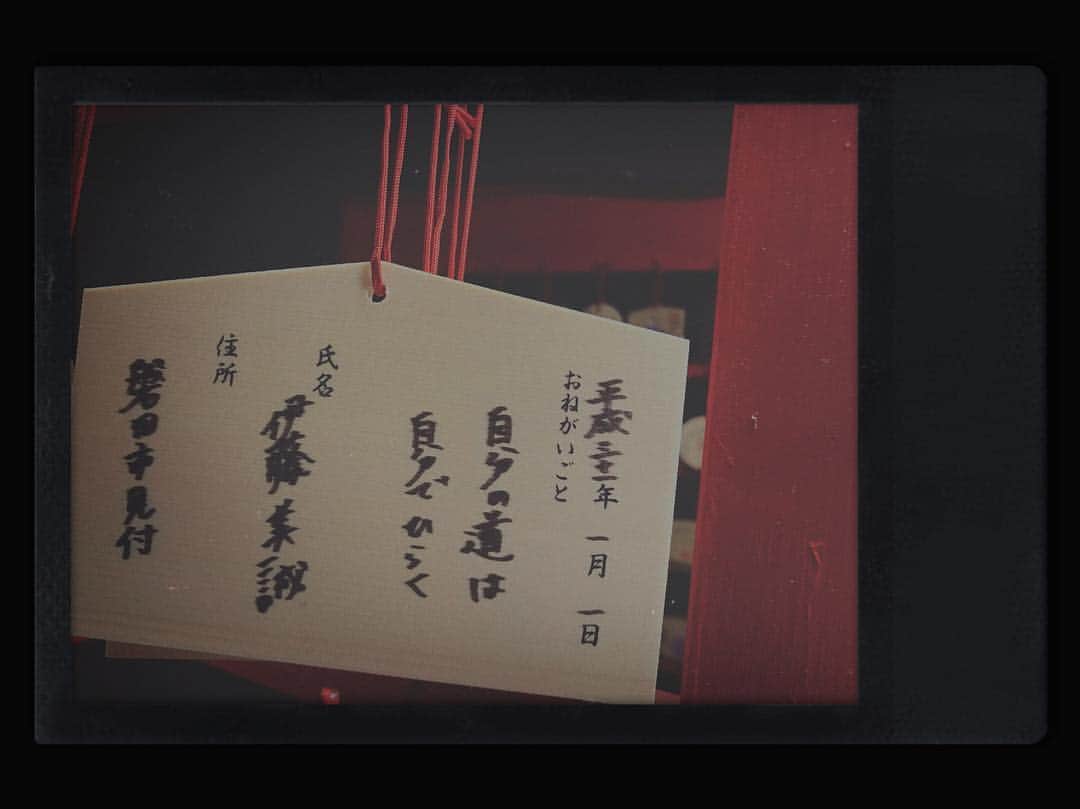 平成三十一年 一月 一日
おねがいごと
自分の道は
自分でひらく
氏名
伊藤
住所
磐田市見付